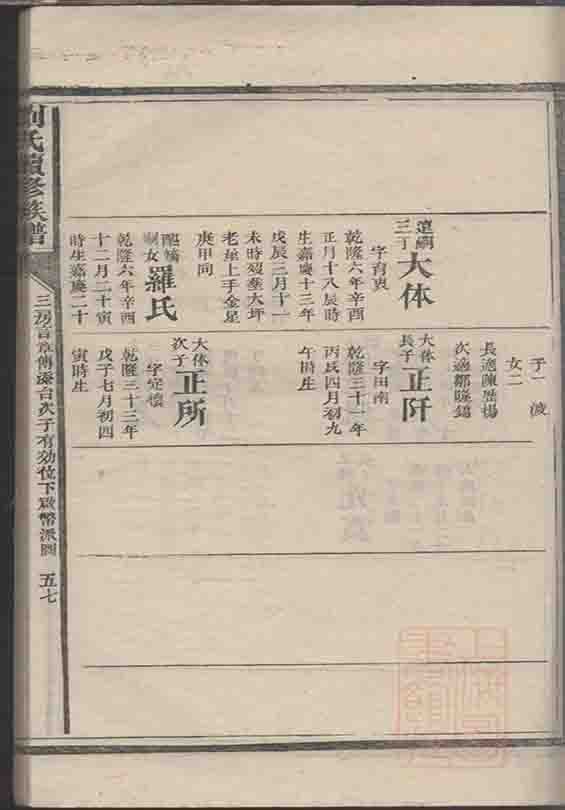 子一
女二
長適陳
次適鄒隆錫
三丁
大体
字育
乾隆六年辛酉
正月十八辰時
生嘉慶十三年
戊辰二月十一
未時歿塟大坪
老屋上手金星
庚甲向
女
羅氏
乾隆六年辛酉
十二月二十寅
時生嘉慶二十
大体
長子
正阡
字田南
乾隆三十一年
丙戌四月初九
午時生
大体
次子
正所
字定
乾隆三十三年
戊子七月初四
寅時生
劉氏續修族譜
三房言章傳
次子有効位下
五七